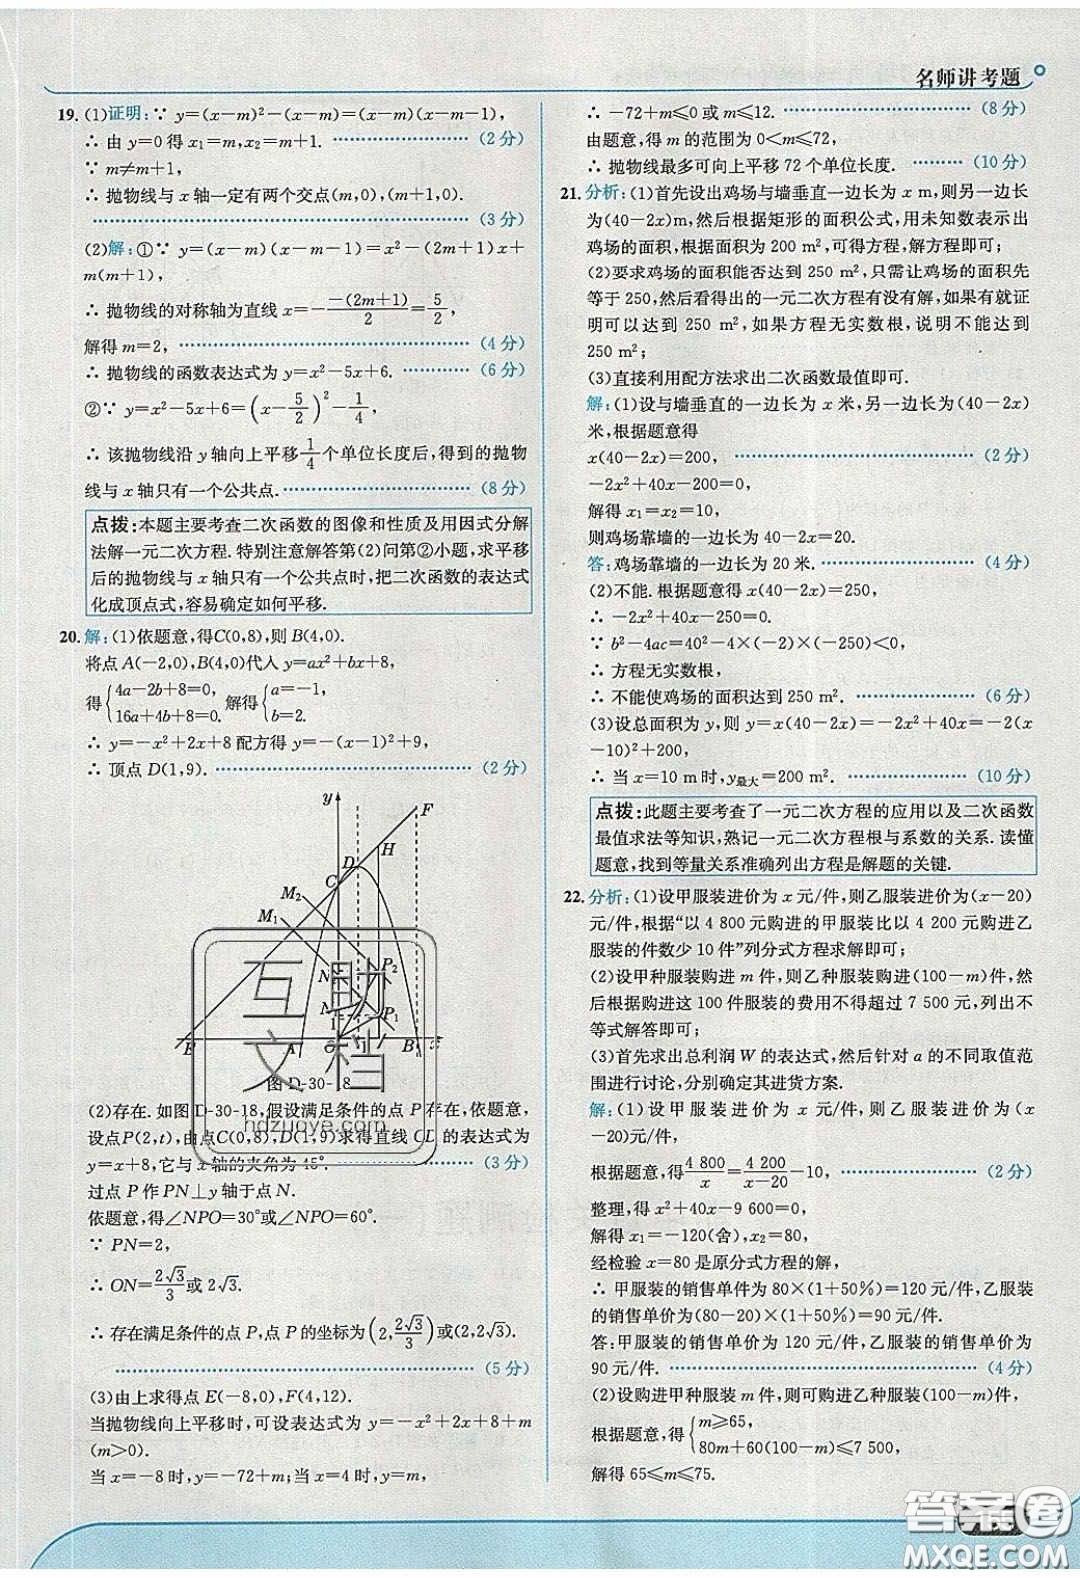 名师讲考题
19. (1)证明:∵ y=(x-m)²-(x-m)=(x-m)(x-m-1),
∴ 由 y=0 得 x₁=m,x₂=m+1. (2 分)
∵ m≠m+1,
∴ 抛物线与 x 轴一定有两个交点(m,0),(m+1,0).
(3 分)
(2)解:①∵ y=(x-m)(x-m-1)=x²-(2m+1)x+
m(m+1),
∴ 抛物线的对称轴为直线 x=-\frac{-(2m+1)}{2}=\frac{5}{2},
解得 m=2, (4 分)
∴ 抛物线的函数表达式为 y=x²-5x+6. (6 分)
②∵ y=x²-5x+6=(x-\frac{5}{2})²-\frac{1}{4},
∴ 该抛物线沿 y 轴向上平移\frac{1}{4}个单位长度后,得到的抛物
线与 x 轴只有一个公共点. (8 分)
点拨:本题主要考查二次函数的图像和性质及用因式分解
法解一元二次方程.特别注意解答第(2)问第②小题,求平移
后的抛物线与 x 轴只有一个公共点时,把二次函数的表达式
化成顶点式,容易确定如何平移.
20. 解:(1)依题意,得C(0,8),则 B(4,0).
将点 A(-2,0),B(4,0)代入 y=ax²+bx+8,
得{4a-2b+8=0, 解得{a=-1,
16a+4b+8=0. b=2.
∴ y=-x²+2x+8 配方得 y=-(x-1)²+9,
∴ 顶点 D(1,9). (2 分)
y F
D H
C
M₂
M₁
N P₂
N P₁
1
E A O 1 B x
图 D-30-18
(2)存在.如图 D-30-18,假设满足条件的点 P 存在,依题意,
设点P(2,t),由点C(0,8),D(1,9)求得直线 CD 的表达式为
y=x+8,它与 x 轴的夹角为 45°. (3 分)
过点 P 作 PN⊥y 轴于点 N.
依题意,得∠NPO=30°或∠NPO=60°.
∵ PN=2,
∴ ON=\frac{2√3}{3}或 2√3.
∴ 存在满足条件的点 P,点 P 的坐标为(2,\frac{2√3}{3})或(2,2√3).
(5 分)
(3)由上求得点 E(-8,0),F(4,12).
当抛物线向上平移时,可设表达式为 y=-x²+2x+8+m
(m>0).
当 x=-8 时,y=-72+m;当 x=4 时,y=m,
∴ -72+m≤0 或 m≤12. (8 分)
由题意,得 m 的范围为 0<m≤72,
∴ 抛物线最多可向上平移 72 个单位长度. (10 分)
21. 分析:(1)首先设出鸡场与墙垂直一边长为 x m,则另一边长
为(40-2x)m,然后根据矩形的面积公式,用未知数表示出
鸡场的面积,根据面积为 200 m²,可得方程,解方程即可;
(2)要求鸡场的面积能否达到 250 m²,只需让鸡场的面积先
等于 250,然后看得出的一元二次方程有没有解,如果有就证
明可以达到 250 m²,如果方程无实数根,说明不能达到
250 m²;
(3)直接利用配方法求出二次函数最值即可.
解:(1)设与墙垂直的一边长为 x 米,另一边长为(40-2x)
米,根据题意得
x(40-2x)=200, (2 分)
-2x²+40x-200=0,
解得 x₁=x₂=10,
则鸡场靠墙的一边长为 40-2x=20.
答:鸡场靠墙的一边长为 20 米. (4 分)
(2)不能.根据题意得 x(40-2x)=250,
∴ -2x²+40x-250=0,
∵ b²-4ac=40²-4×(-2)×(-250)<0,
∴ 方程无实数根,
∴ 不能使鸡场的面积达到 250 m². (6 分)
(3)设总面积为 y,则 y=x(40-2x)=-2x²+40x=-2(x
-10)²+200,
∴ 当 x=10 m 时,y最大=200 m². (10 分)
点拨:此题主要考查了一元二次方程的应用以及二次函数
最值求法等知识,熟记一元二次方程根与系数的关系.读懂
题意,找到等量关系准确列出方程是解题的关键.
22. 分析:(1)设甲服装进价为 x 元/件,则乙服装进价为(x-20)
元/件,根据“以 4 800 元购进的甲服装比以 4 200 元购进乙
服装的件数少 10 件”列分式方程求解即可;
(2)设甲种服装购进 m 件,则乙种服装购进(100-m)件,然
后根据购进这 100 件服装的费用不得超过 7 500 元,列出不
等式解答即可;
(3)首先求出总利润 W 的表达式,然后针对 a 的不同取值范
围进行讨论,分别确定其进货方案.
解:(1)设甲服装进价为 x 元/件,则乙服装进价为(x
-20)元/件,
根据题意,得\frac{4 800}{x}=\frac{4 200}{x-20}-10, (2 分)
整理,得 x²+40x-9 600=0,
解得 x₁=-120(舍),x₂=80,
经检验 x=80 是原分式方程的解,
∴ 甲服装的销售单件为 80×(1+50%)=120 元/件,乙服
装的销售单价为(80-20)×(1+50%)=90 元/件.
答:甲服装的销售单价为 120 元/件,乙服装的销售单价为
90 元/件. (4 分)
(2)设购进甲种服装 m 件,则可购进乙种服装(100-m)件,
根据题意,得{m≥65,
80m+60(100-m)≤7 500,
解得 65≤m≤75.
互助文档
hdzuoye.com
答案圈
MXQE.COM